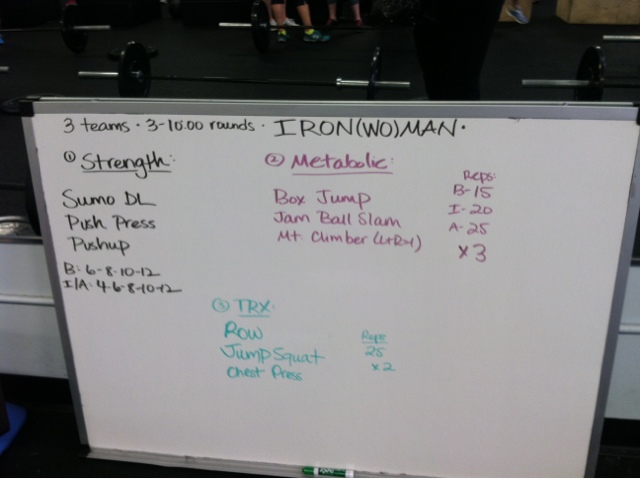 3 teams · 3-10:00 rounds · IRON(WO)MAN·
① Strength:
Sumo DL
Push Press
Pushup
B: 6-8-10-12
I/A: 4-6-8-10-12
② Metabolic:
Box Jump
Jam Ball Slam
Mt. Climber (L+R=1)
Reps:
B-15
I-20
A-25
x3
③ TRX:
Row
Jump Squat
Chest Press
Reps
25
x2
EXPO